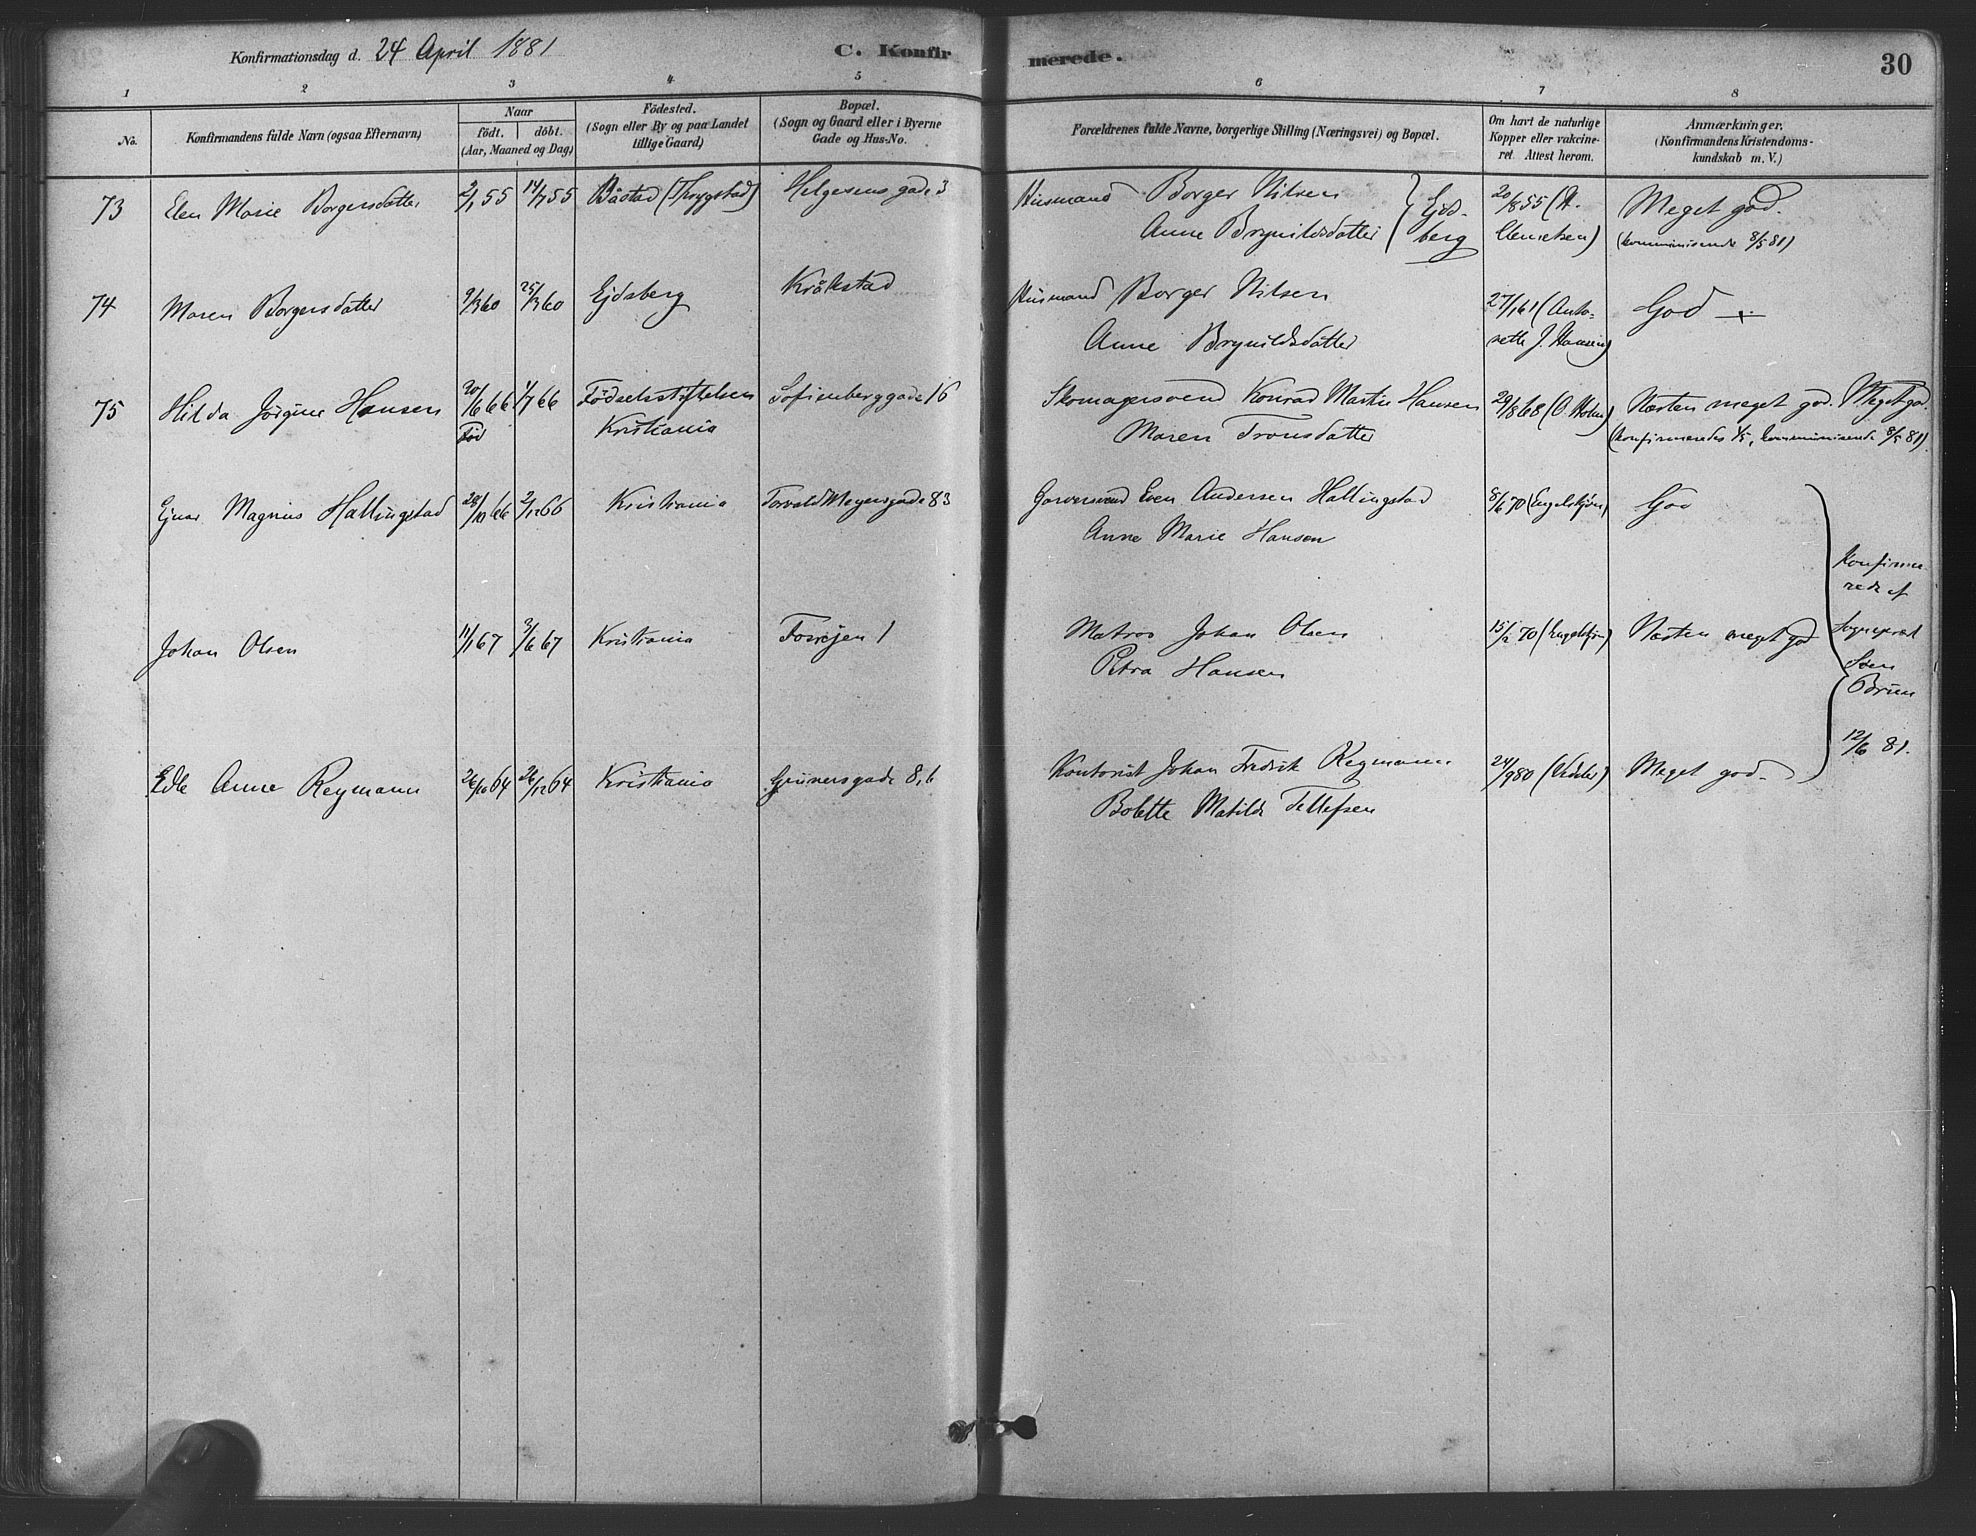 Konfirmationsdag d. 24 April 1881
C. Konfirmerede.
30
1 2 3 4 5 6 7 8
No.
Konfirmandens fulde Navn (ogsaa Efternavn)
Naar
födt. döbt.
(Aar, Maaned og Dag)
Födested.
(Sogn eller By og paa Landet
tillige Gaard)
Bopæl.
(Sogn og Gaard eller i Byerne
Gade og Hus-No.
Forældrenes fulde Navne, borgerlige Stilling (Næringsvei) og Bopæl.
Om havt de naturlige
Kopper eller vakcine-
ret. Attest herom.
Anmærkninger.
(Konfirmandens Kristendoms-
kundskab m. V.)
73 Elen Marie Borgersdatter 2/1 55 14/7 55 Båstad (Trygstad) Helgesens gade 3 Husmand Borger Nilsen 20/8 55 (A. Meget god.
Anne Brynildsdatter Ejds-
berg Clemetsen) (kommuniserede 8/5 81)
74 Maren Borgersdatter 9/3 60 25/3 60 Ejdsberg Kråkstad Husmand Borger Nilsen 27/1 61 (Anto- God
Anne Brynildsdatter nette J. Hansen)
75 Hilda Jörgine Hansen 20/6 66 1/7 66 Födselsstiftelsen Sofienberggade 16 Skomagersvend Konrad Martin Hansen 29/8 68 (O. Holm) Næsten meget god. Meget god.
Kristiania Maren Tronsdatter (konfirmeredes 1/5, kommuniserede 8/5 81)
Ejnar Magnus Hallingstad 28/10 66 2/12 66 Kristiania Torvald Meyersgade 83 Garversvend Even Andersen Hallingstad 8/6 70 (Engelskjön) God
Anne Marie Hansen
Konfirme
rede af
Johan Olsen 11/1 67 3/6 67 Kristiania Fosvejen 1 Matros Johan Olsen 15/2 70 (Engelskjön) Næsten meget god Sogneprest
Petra Hansen Sven
Bruun
12/6 81.
Edle Anne Reymann 26/10 64 26/12 64 Kristiania Grünersgade 8,6 Kontorist Johan Fredrik Reymann 24/9 80 Meget god.
Bolette Matilde Tellefsen